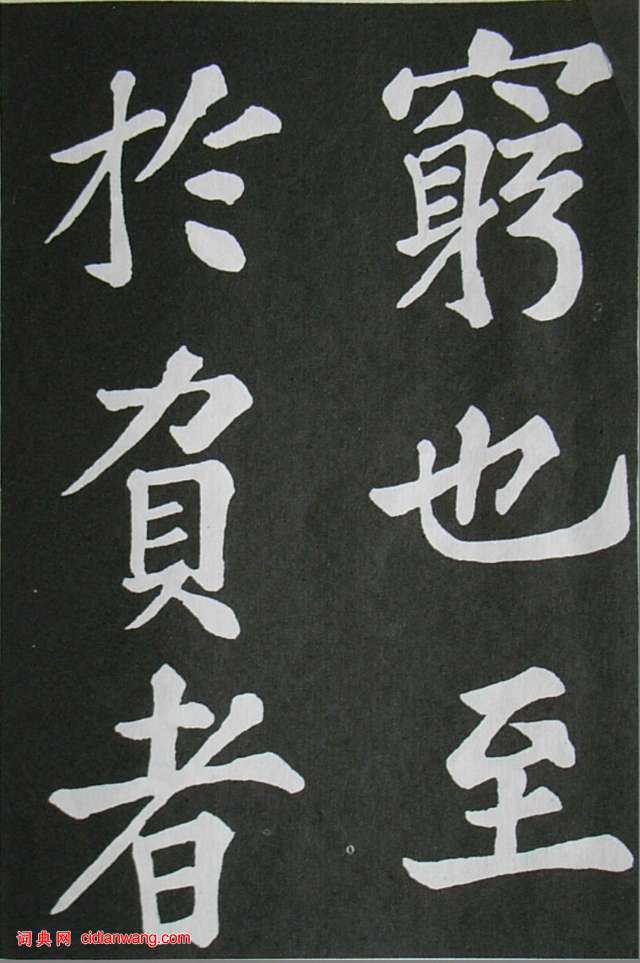 窮也至
於負者
词典网 cidianwang.com